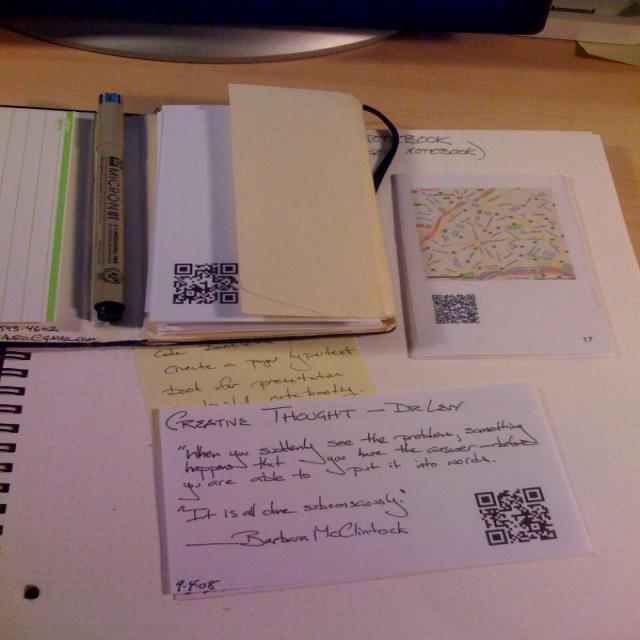 NOTEBOOK
NOTEBOOK)
MICRON
17
create a paper hypertext
book for presentation
build notebooks.
CREATIVE THOUGHT — DR LEVY
"When you suddenly see the problem, something
happens that you have the answer — before
you are able to put it into words.
"It is all done subconsciously."
— Barbara McClintock
9.4.08